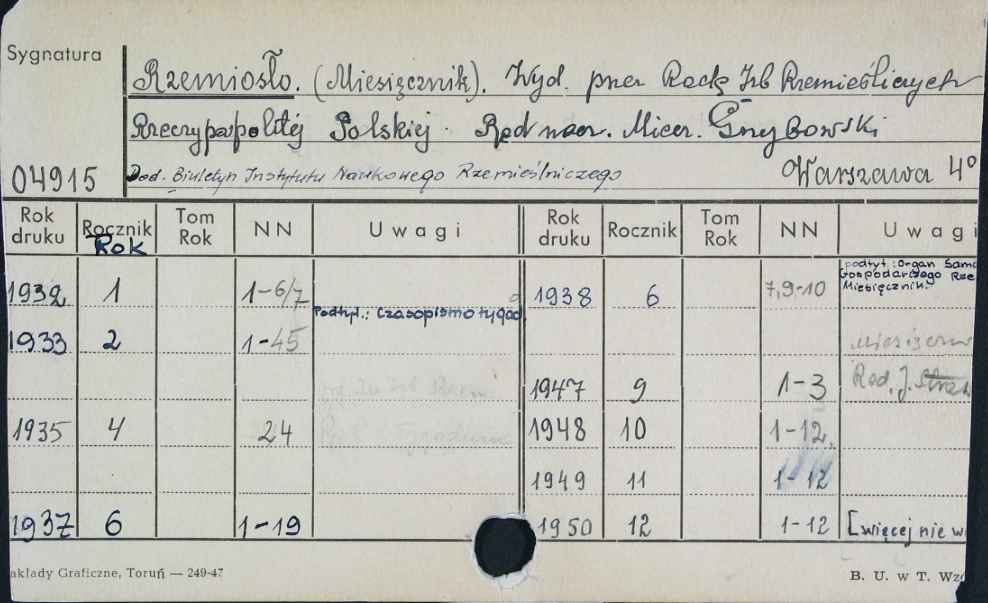 Sygnatura
Rzemiosło. (Miesięcznik). Wyd. przez Radę Izb Rzemieślniczych
Rzeczypospolitej Polskiej. Red nacz. Miecz. Grzybowski
04915
Dod. Biuletyn Instytutu Naukowego Rzemieślniczego Warszawa 4°
Rok druku Rocznik Tom Rok NN Uwagi Rok druku Rocznik Tom Rok NN Uwagi
Rok
podtyt.: Organ Samo
Gospodarczego Rze
Miesięcznik.
1932 1 1-6/7 1938 6 7,9-10
Podtyt.: Czasopismo tygod.
1933 2 1-45
1947 9 1-3 Red. J.
1935 4 24 1948 10 1-12
1949 11 1-12
1937 6 1-19 1950 12 1-12 [więcej nie w
akłady Graficzne, Toruń — 249-47 B. U. w T. Wzó